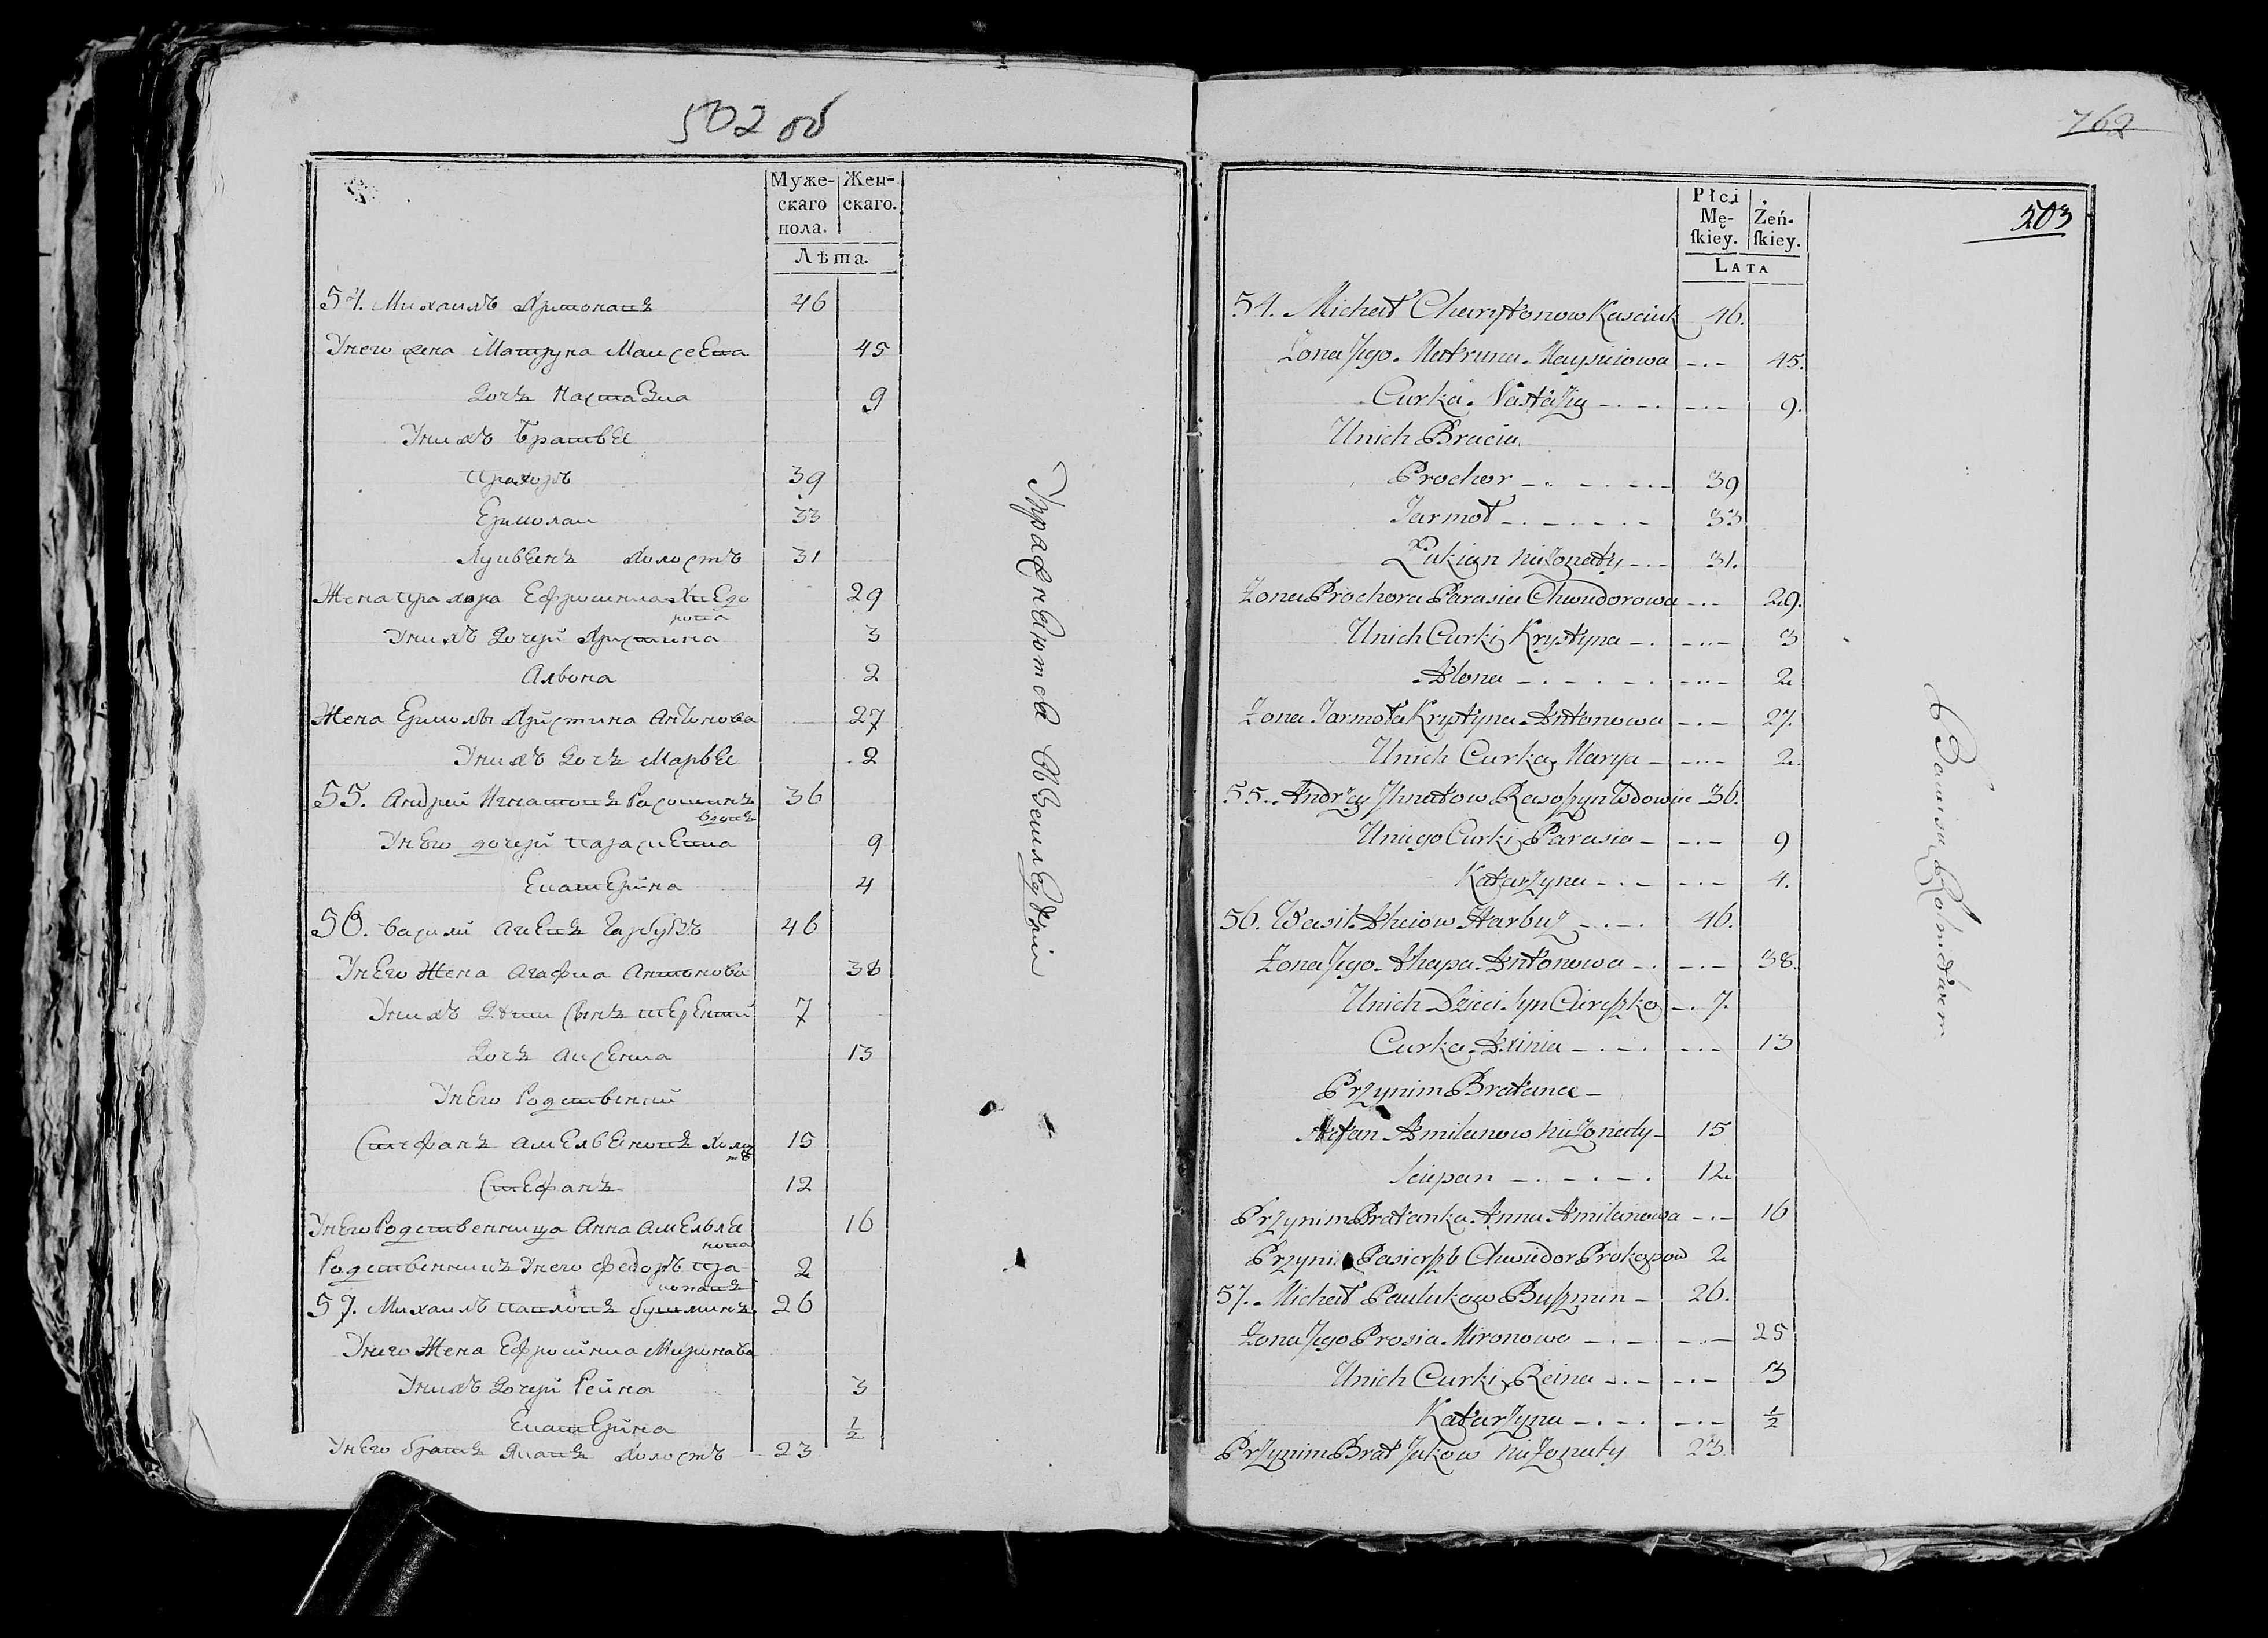 502 об
Муже-
скаго
пола.
Жен-
скаго.
Лѣта.
54. Михаилъ Харитоновъ 46
У него жена Матруна Мацсеева 45
Дочь Настазиа 9
У нихъ братьее
Прахоръ 39
Ермолаи 33
Лукьенъ холостъ 31
Жена Прахора Ефросиниа Хведо
рова 29
У нихъ дочери Христина 3
Альона 2
Жена Ермолы Христина Антонова 27
У нихъ дочь Марьее 2
55. Андрей Игнатовъ Расошинъ 36
вдовъ
У него дочери Парасиевиа 9
Екатерина 4
56. Василй Агеевъ Гарбузъ 46
У него жена Агафиа Антонова 38
У нихъ дѣти сынъ Терентий 7
Дочь Аксениа 13
У него родственнии
Стефанъ Амельеновъ холос
тъ 15
Стефанъ 12
У него родственница Анна Амельле
нова 16
Родственникъ у него Федоръ Пра
коповъ 2
57. Михаилъ Павловъ Бушминъ 26
У него жена Ефросиниа Миронова
У нихъ дочери Реина 3
Екатерина 1/2
У него братъ Яковъ холостъ 23
Упражнеются въ земледѣлии
762
503
Płci
Mę-
ſkiey.
Żeń-
ſkiey.
Lata
54. Michał Charytonow Kasciuk 46.
Żona Jego Matruna Maysiiowa 45.
Curka Nastazia 9.
Unich Bracia
Prochor 39
Jarmoł 33
Łukian nieżonaty 31.
Żona Prochora Parasia Chwiidorowa 29.
Unich Curki Krystyna 3
Alona 2
Żona Jarmoła Krystyna Antonowa 27.
Unich Curka Marya 2.
55. Andrzey Jhnatow Rasoszyn Wdowiec 36.
Uniego Curki Parasia 9
Katarzyna 4.
56. Wasil Aheiow Harbuz 46.
Żona Jego Ahapa Antonowa 38.
Unich Dzieci Syn Cireszko 7.
Curka Axinia 13
Przynim Bratana
Astan Amilanow nieżonaty 15
Sciepan 12
Przynim Bratanka Anna Amilanowa 16
Przyni Pasierzb Chwiidor Prokopow 2
57. Michał Paulukow Buszmin 26.
Żona Jego Prosia Mironowa 25
Unich Curki Reina 3
Katarzyna 1/2
Przynim Brat Jakow nieżonaty 23
Bawią się Rolnictwem